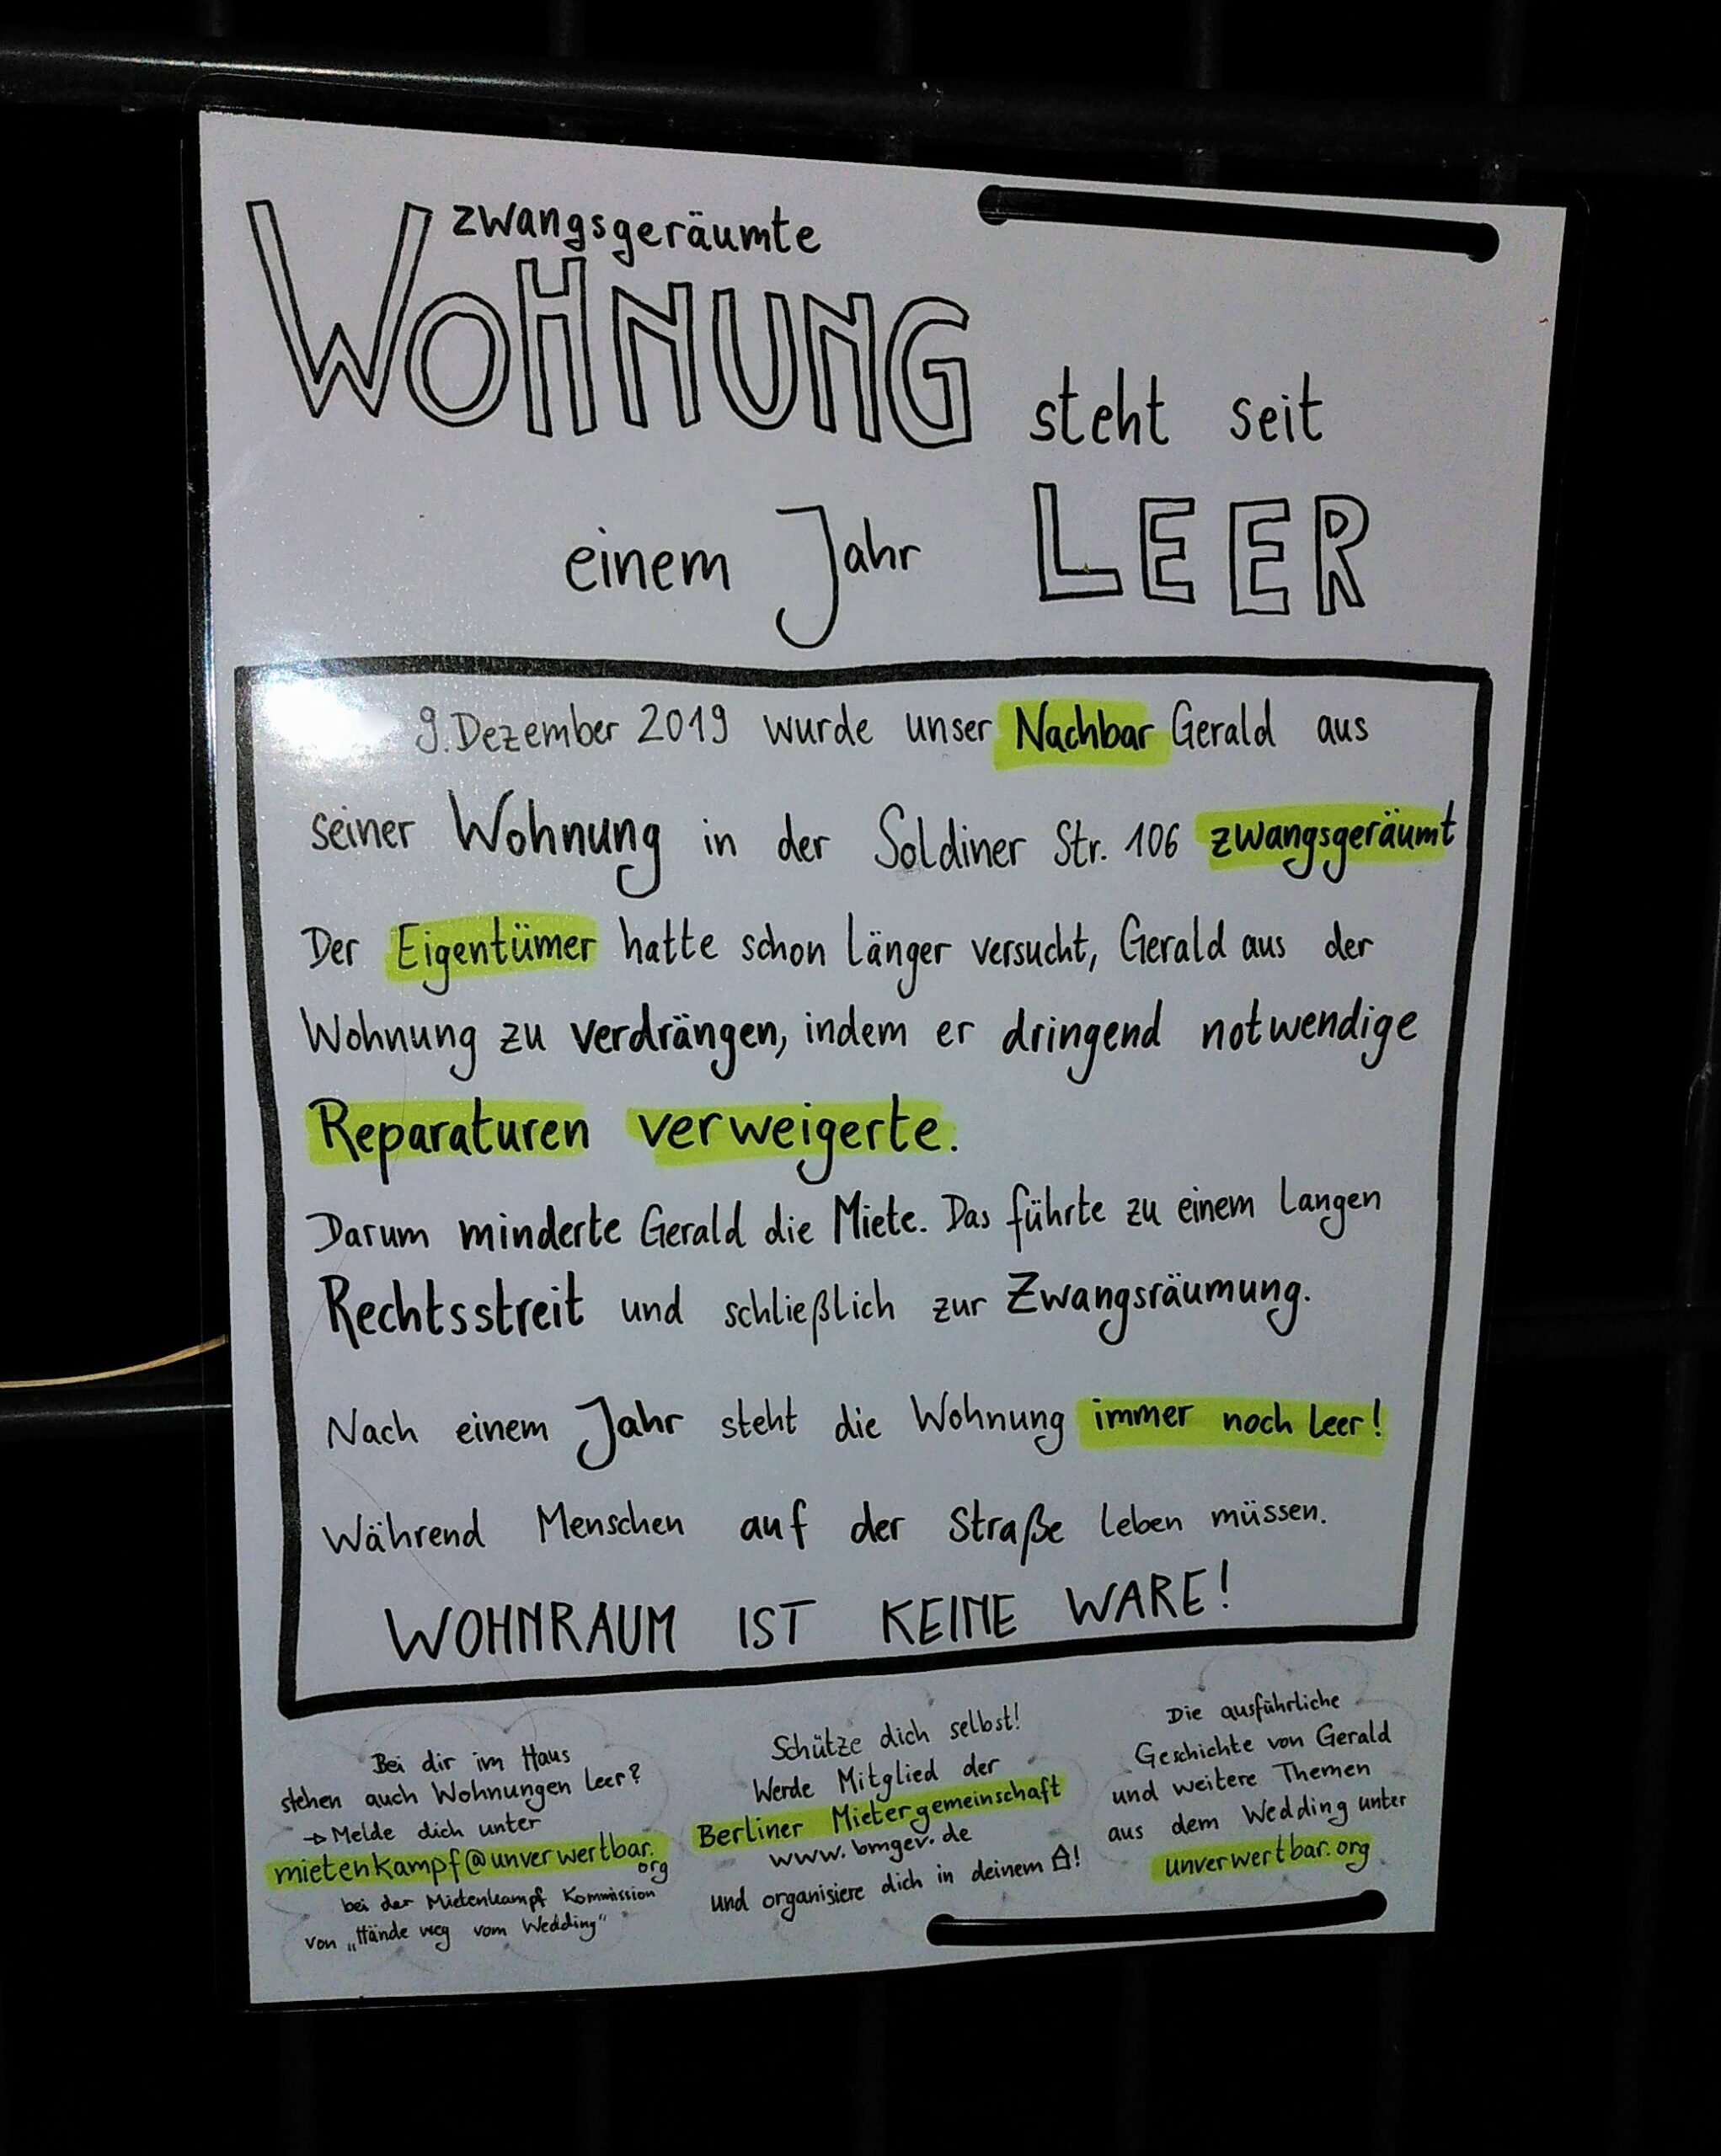 zwangsgeräumte
WOHNUNG steht seit
einem Jahr LEER
9. Dezember 2019 wurde unser Nachbar Gerald aus
seiner Wohnung in der Soldiner Str. 106 zwangsgeräumt
Der Eigentümer hatte schon länger versucht, Gerald aus der
Wohnung zu verdrängen, indem er dringend notwendige
Reparaturen verweigerte.
Darum minderte Gerald die Miete. Das führte zu einem langen
Rechtsstreit und schließlich zur Zwangsräumung.
Nach einem Jahr steht die Wohnung immer noch leer!
Während Menschen auf der Straße leben müssen.
WOHNRAUM IST KEINE WARE!
Bei dir im Haus
stehen auch Wohnungen leer?
→ Melde dich unter
mietenkampf@unverwertbar.
org
bei der Mietenkampf Kommission
von „Hände weg vom Wedding"
Schütze dich selbst!
Werde Mitglied der
Berliner Mietergemeinschaft
www.bmgev.de
und organisiere dich in deinem !
Die ausführliche
Geschichte von Gerald
und weitere Themen
aus dem Wedding unter
unverwertbar.org